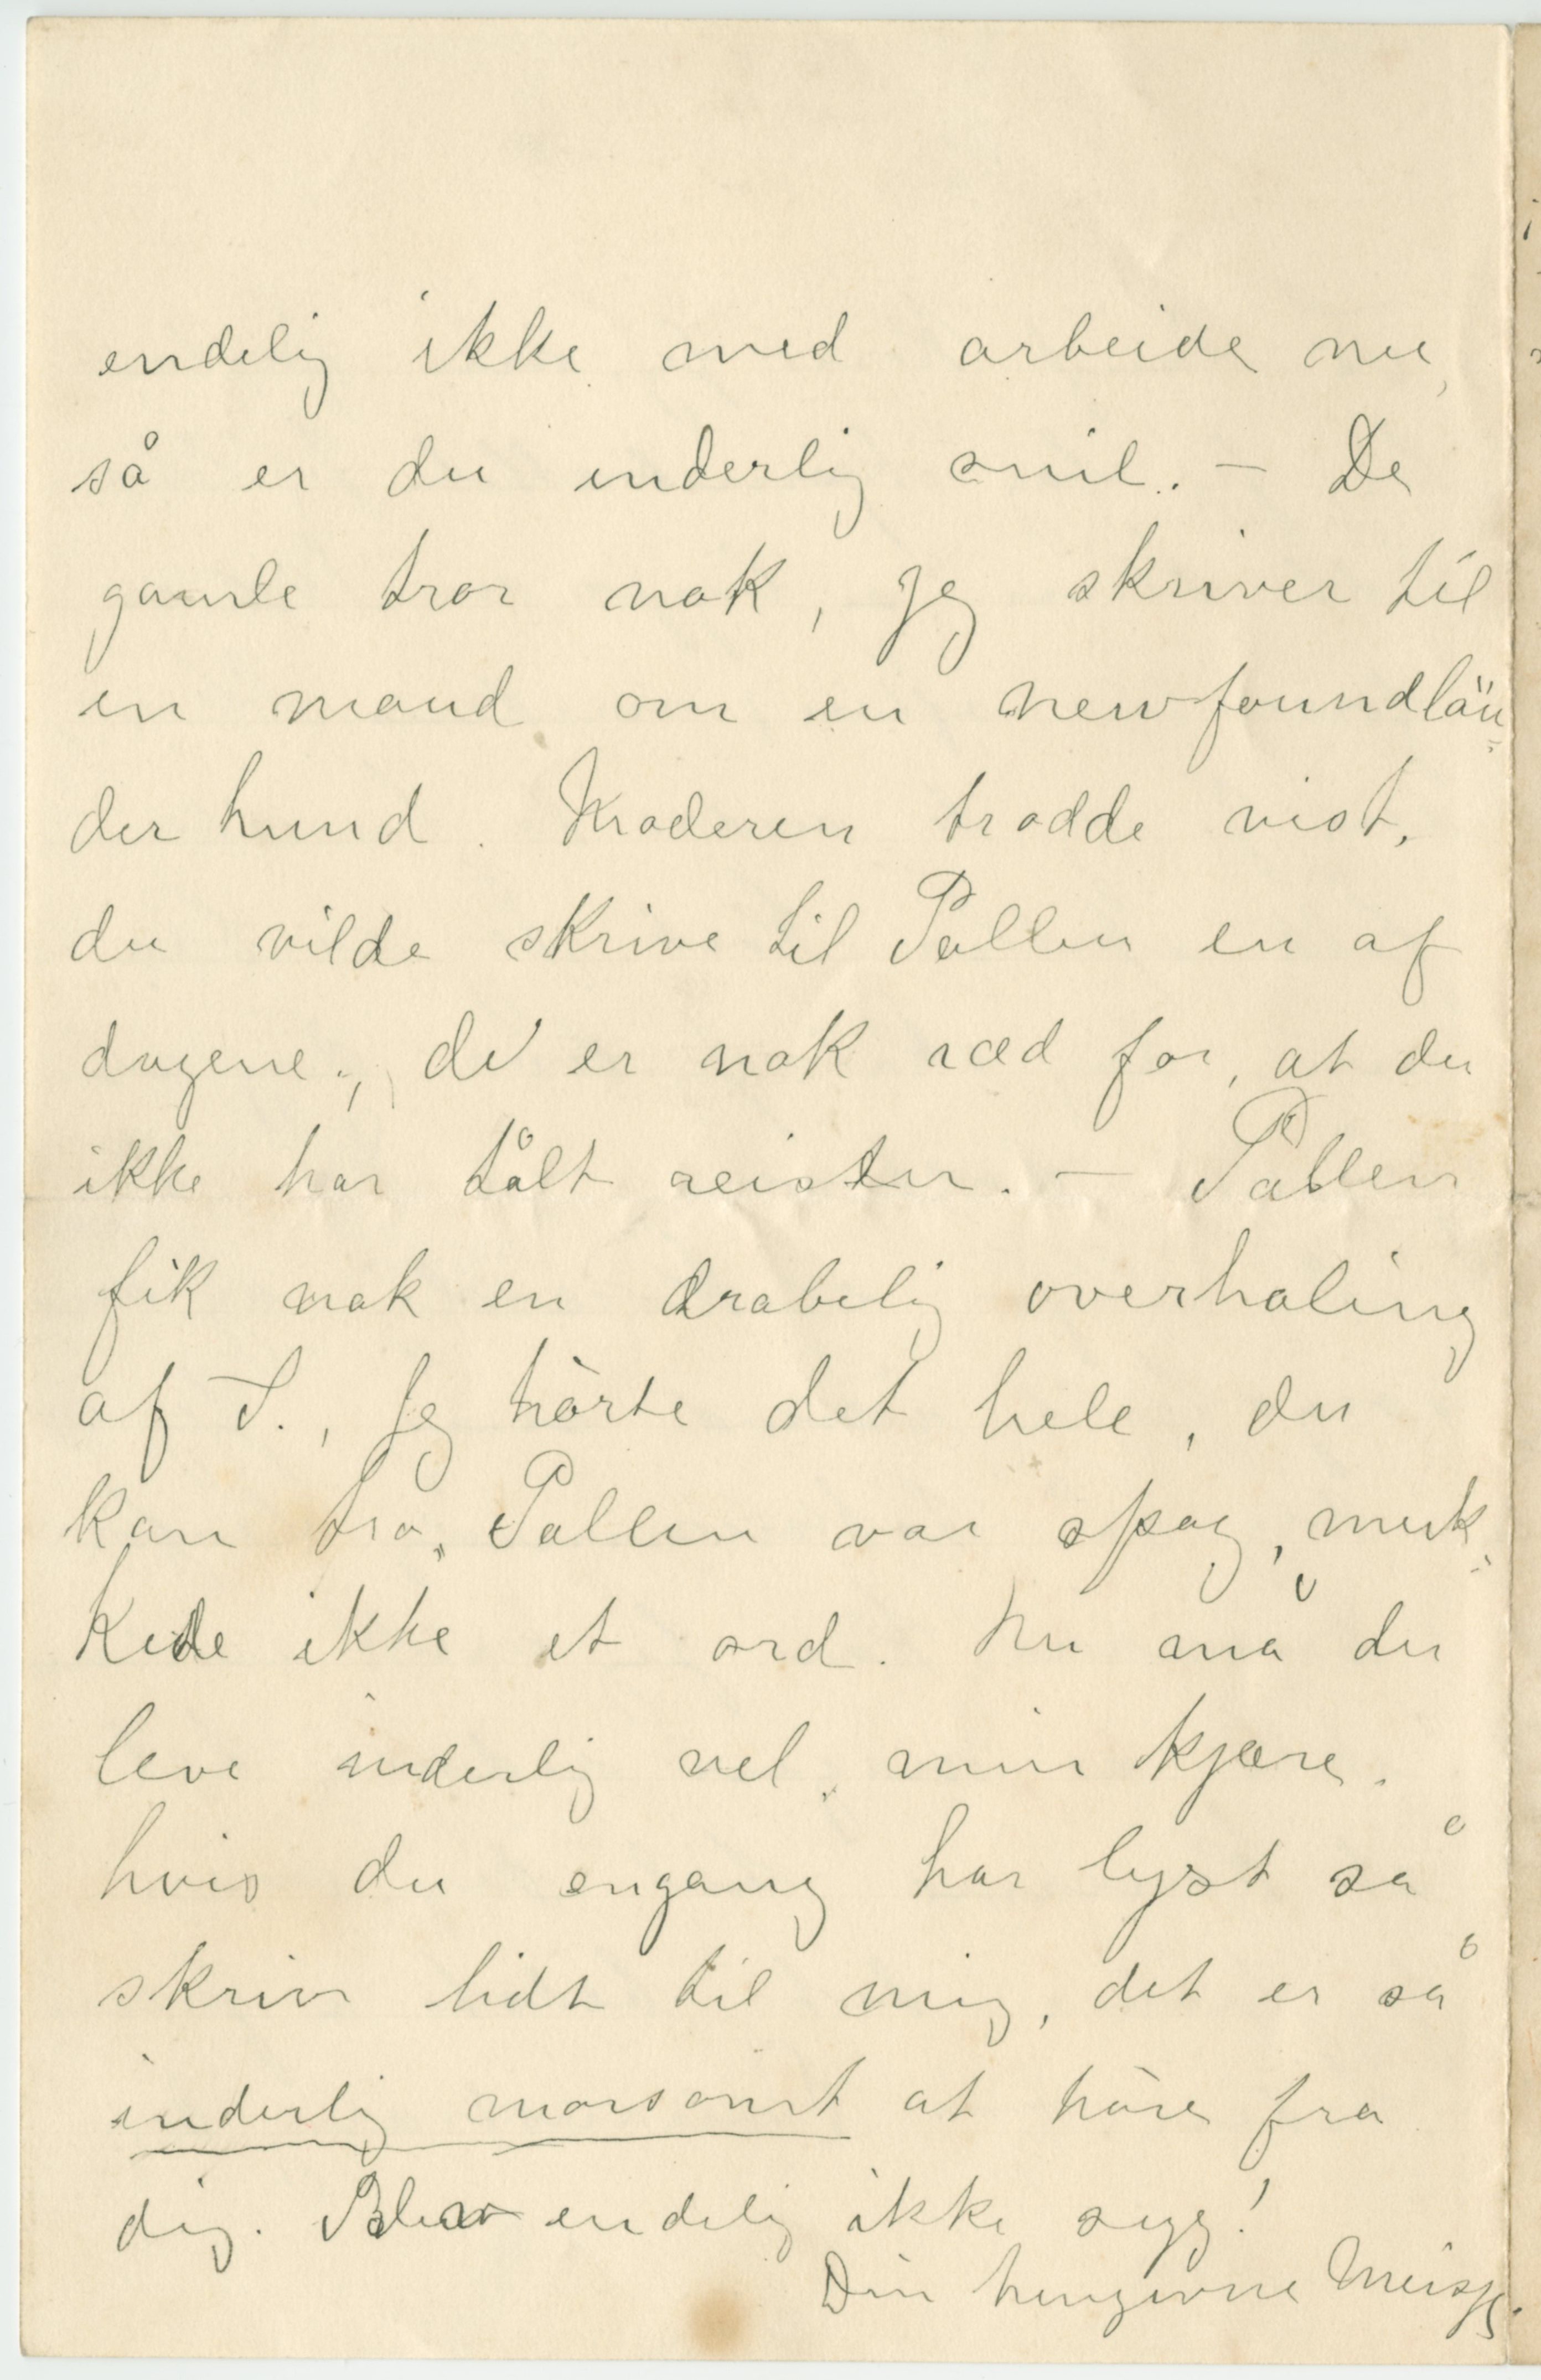 endelig ikke med arbeide nu,
så er du inderlig snil. – De
gamle tror nok, jeg skriver til
en mand om en newfoundlän-
der hund. Moderen trodde vist,
du vilde skrive til Pallen en af
dagene, de er nok ræd for, at du
ikke har tålt reisen. – Pallen
fik nok en drabelig overhaling
af I., jeg hörte det hele, du
kan tro, Pallen var spag, muk-
kede ikke et ord. Nu må du
leve inderlig vel, min kjære.
hvis du engang har lyst så
skriv lidt til mig, det er så
inderlig morsomt at höre fra
dig. Bliv endelig ikke syg!
Din hengivne